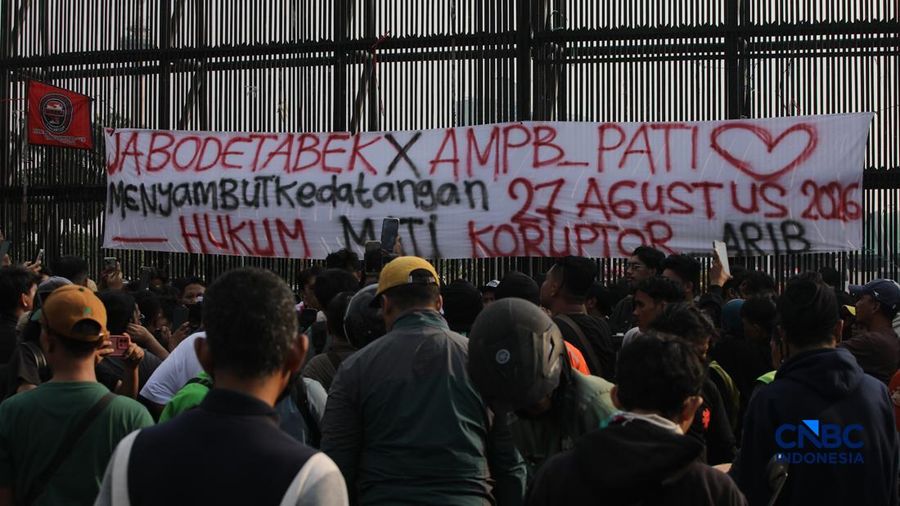 JABODETABEK X AMPB_PATI
MENYAMBUT KEDATANGAN 27 AGUSTUS 2026
— HUKUM MATI KORUPTOR ARIB
CNBC
INDONESIA